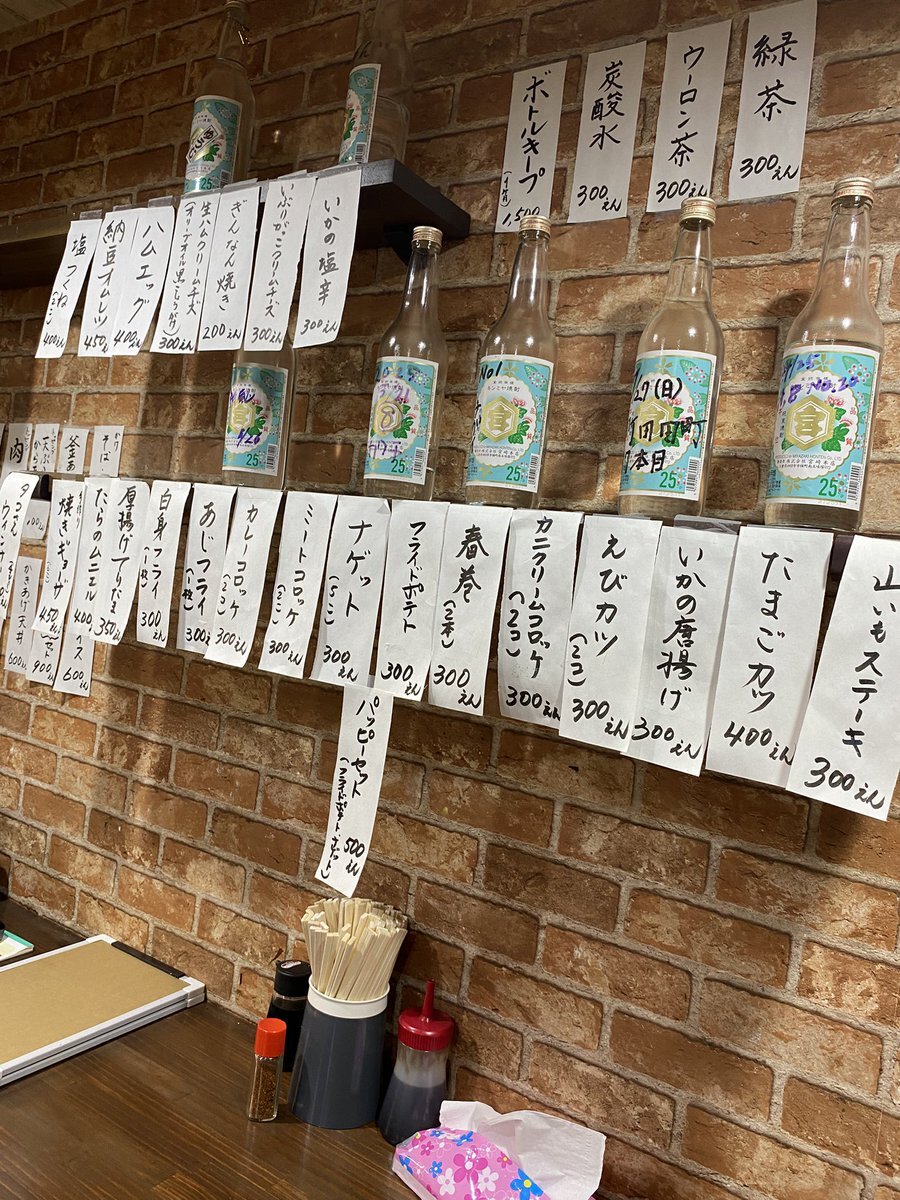 緑茶
300えん
ウーロン茶
300えん
炭酸水
300えん
ボトルキープ
1,500
いかの塩辛
300えん
いぶりがっこクリームチーズ
300えん
ぎんなん焼き
200えん
生ハムクリームチーズ
300えん
ハムエッグ
400えん
納豆オムレツ
450えん
塩つくね
400えん
25%
25%
No1
25%
7(日)
本日
25%
No.24
25%
肉
釜あ
そば
山いもステーキ
300えん
たまごカツ
400えん
いかの唐揚げ
300えん
えびカツ
(2コ)
300えん
カニクリームコロッケ
(2コ)
300えん
春巻
(2本)
300えん
フライドポテト
300えん
ナゲット
(5コ)
300えん
ミートコロッケ
(2コ)
300えん
カレーコロッケ
(2コ)
300えん
あじフライ
(一枚)
300えん
白身フライ
(一枚)
300えん
厚揚げ
350えん
たらのムニエル
400えん
焼きギョーザ
450えん
かきあげ天丼
600えん
900えん
600えん
ハッピーセット
(フライドポテト ナゲット)
500えん